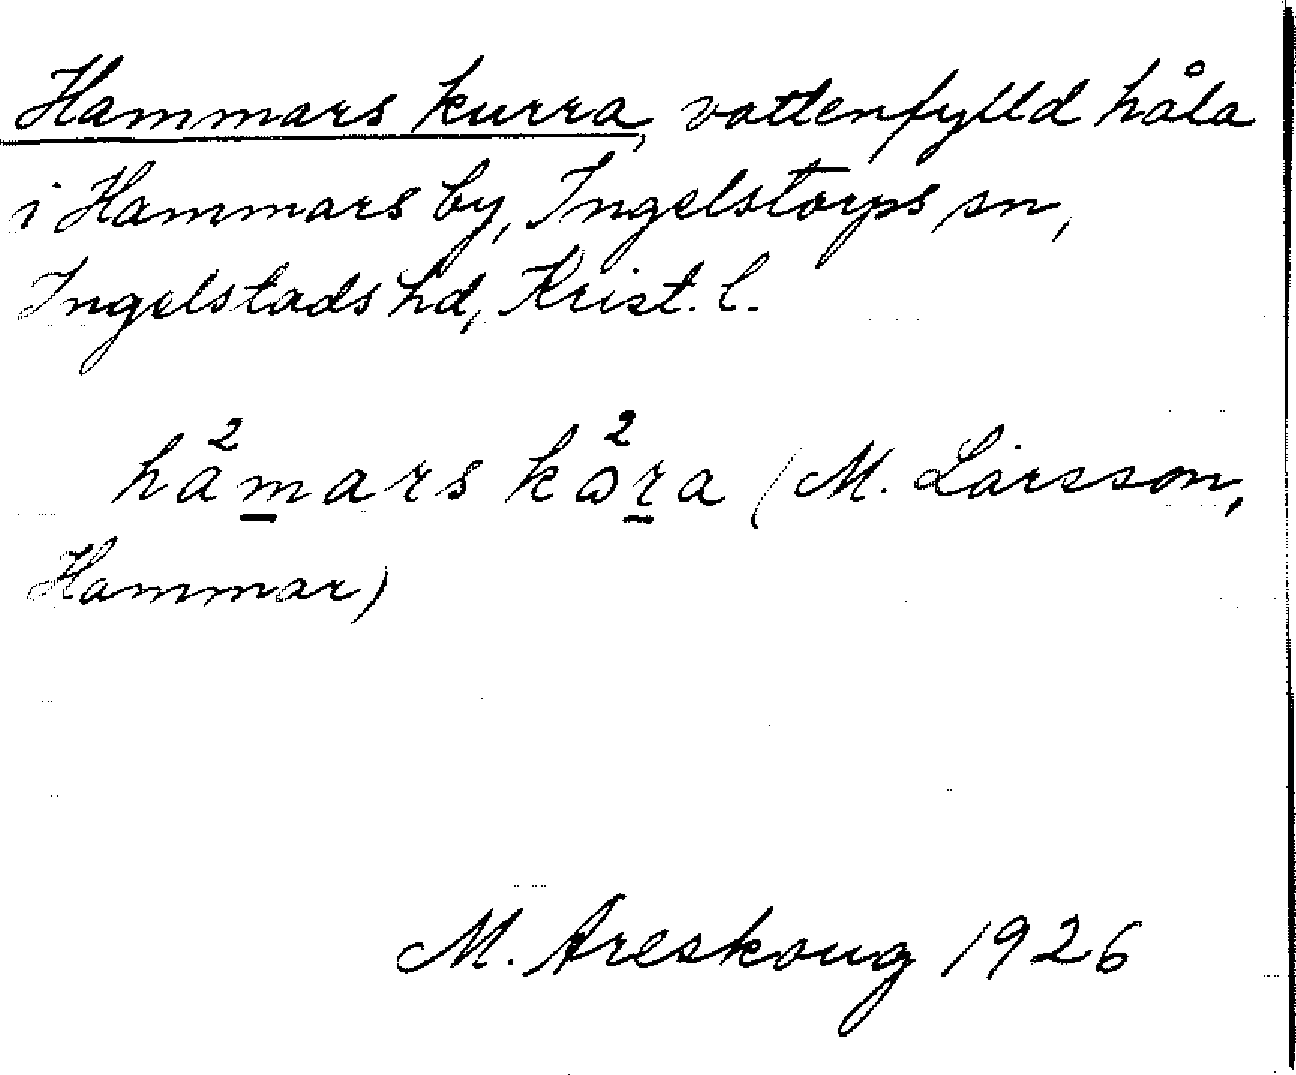 Hammars kurra, vattenfylld håla
i Hammars by, Ingelstorps sn,
Ingelstads hd, Krist. l.
ha²mars kɷ²ra (M. Larsson,
Hammar)
M. Areskoug 1926